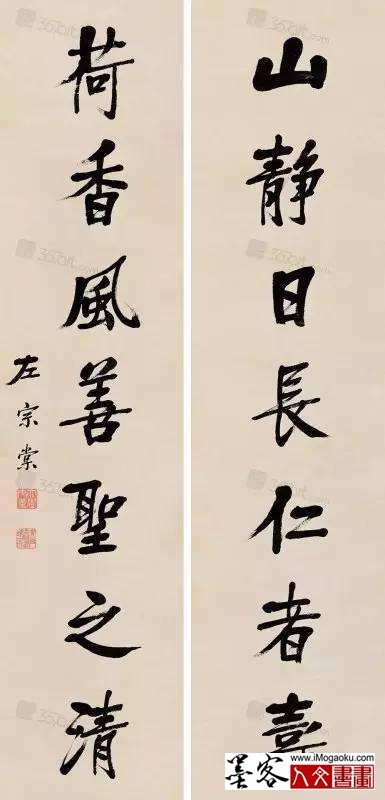 山静日長仁者壽
荷香風善聖之清
左宗棠
墨客
www.iMogaoku.com
人文書畫